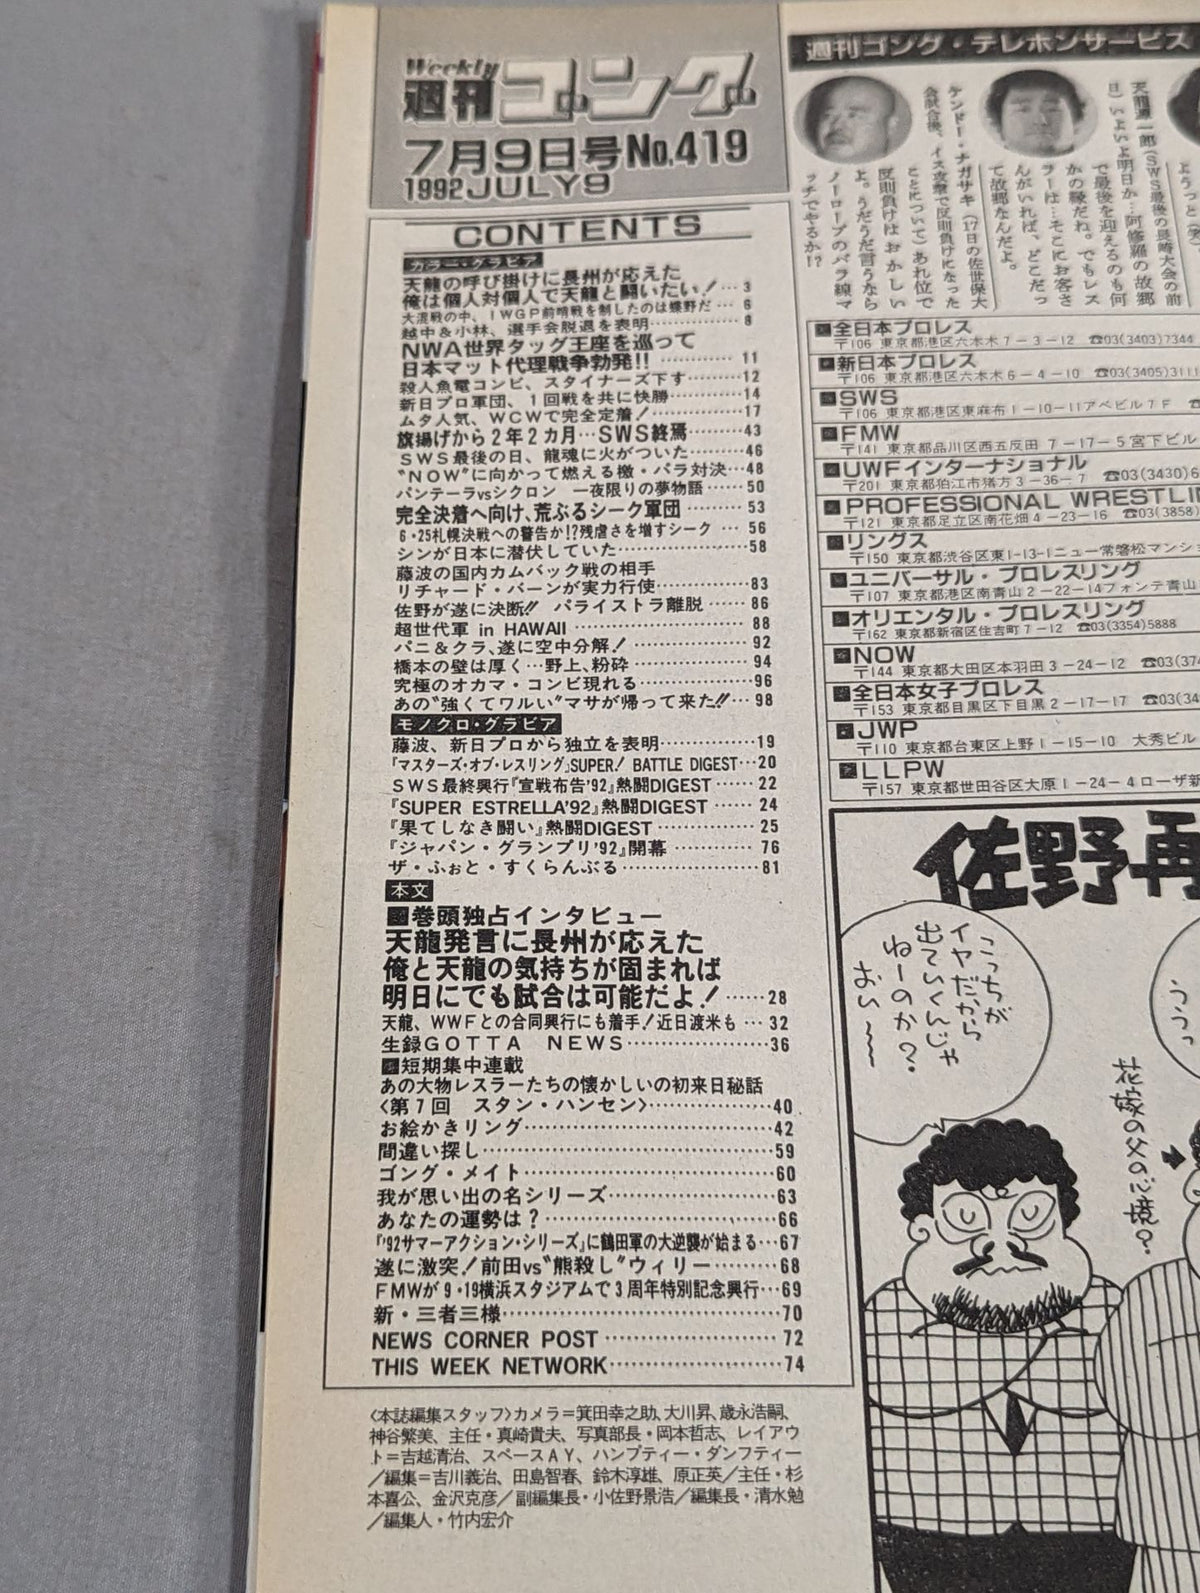 Weekly
週刊ゴング
7月9日号No.419
1992JULY9
CONTENTS
カラー・グラビア
天龍の呼び掛けに長州が応えた
俺は個人対個人で天龍と闘いたい!…3
大混戦の中、IWGP前哨戦を制したのは蝶野だ…6
越中&小林、選手会脱退を表明…………8
NWA世界タッグ王座を巡って
日本マット代理戦争勃発!!…………11
殺人魚雷コンビ、スタイナーズ下す……12
新日プロ軍団、1回戦を共に快勝………14
ムタ人気、WCWで完全定着!…………17
旗揚げから2年2カ月…SWS終焉………43
SWS最後の日、龍魂に火がついた………46
“NOW”に向かって燃える檄・バラ対決…48
パンテーラvsシクロン 一夜限りの夢物語……50
完全決着へ向け、荒ぶるシーク軍団………53
6・25札幌決戦への警告か!?残虐さを増すシーク…56
シンが日本に潜伏していた………………58
藤波の国内カムバック戦の相手
リチャード・バーンが実力行使…………83
佐野が遂に決断!! パライストラ離脱……86
超世代軍 in HAWAII………………………88
パニ&クラ、遂に空中分解!………………92
橋本の壁は厚く…野上、粉砕……………94
究極のオカマ・コンビ現れる……………96
あの“強くてワルい”マサが帰って来た!!…98
モノクロ・グラビア
藤波、新日プロから独立を表明……………19
『マスターズ・オブ・レスリング』SUPER! BATTLE DIGEST…20
SWS最終興行『宣戦布告'92』熱闘DIGEST……22
『SUPER ESTRELLA'92』熱闘DIGEST……24
『果てしなき闘い』熱闘DIGEST……………25
『ジャパン・グランプリ'92』開幕…………76
ザ・ふぉと・すくらんぶる…………………81
本文
巻頭独占インタビュー
天龍発言に長州が応えた
俺と天龍の気持ちが固まれば
明日にでも試合は可能だよ!……28
天龍、WWFとの合同興行にも着手!近日渡米も…32
生録GOTTA NEWS…………………36
短期集中連載
あの大物レスラーたちの懐かしいの初来日秘話
〈第7回 スタン・ハンセン〉………………40
お絵かきリング………………………………42
間違い探し……………………………………59
ゴング・メイト………………………………60
我が思い出の名シリーズ……………………63
あなたの運勢は?……………………………66
『'92サマーアクション・シリーズ』に鶴田軍の大逆襲が始まる…67
遂に激突!前田vs“熊殺し”ウィリー………68
FMWが9・19横浜スタジアムで3周年特別記念興行…69
新・三者三様…………………………………70
NEWS CORNER POST……………………72
THIS WEEK NETWORK……………………74
〈本誌編集スタッフ〉カメラ=箕田幸之助、大川昇、歳永浩嗣、
神谷繁美、主任・真崎貴夫、写真部長・岡本哲志、レイアウ
ト=吉越清治、スペースAY、ハンプティー・ダンプティー
/編集=吉川義治、田島智春、鈴木淳雄、原正英/主任・杉
本喜公、金沢克彦/副編集長・小佐野景浩/編集長・清水勉
/編集人・竹内宏介
週刊ゴング・テレホンサービス
天龍源一郎(SWS最後の長崎大会の前
日)いよいよ明日か…阿修羅の故郷
で最後を迎えるのも何
かの縁だね。でもレス
ラーは…そこにお客さ
んがいれば、どこだっ
て故郷なんだよ。
ケンドー・ナガサキ(17日の佐世保大
会試合後、イス攻撃で反則負けになった
ことについて)あれ位で
反則負けはおかしい
よ。うだうだ言うなら
ノーロープのバラ線マ
ッチでやるか!?
ようっと(笑)
全日本プロレス
〒106 東京都港区六本木7-3-12 ☎03(3403)7344
新日本プロレス
〒106 東京都港区六本木6-4-10 ☎03(3405)3111
SWS
〒106 東京都港区東麻布1-10-11アベビル7F ☎
FMW
〒141 東京都品川区西五反田7-17-5宮下ビル
UWFインターナショナル
〒201 東京都狛江市猪方3-36-7 ☎03(3430)6
PROFESSIONAL WRESTLIN
〒121 東京都足立区南花畑4-23-16 ☎03(3858)
リングス
〒150 東京都渋谷区東1-13-1ニュー常磐松マンショ
ユニバーサル・プロレスリング
〒107 東京都港区南青山2-22-14フォンテ青山
オリエンタル・プロレスリング
〒162 東京都新宿区住吉町7-12 ☎03(3354)5888
NOW
〒144 東京都大田区本羽田3-24-12 ☎03(374
全日本女子プロレス
〒153 東京都目黒区下目黒2-17-17 ☎03(34
JWP
〒110 東京都台東区上野1-15-10 大秀ビル
LLPW
〒157 東京都世田谷区大原1-24-4ローザ新
佐野再
こっちが
イヤだから
出ていくんじゃ
ねーのか?
おい〜〜
ううっ
花嫁の父の心境?